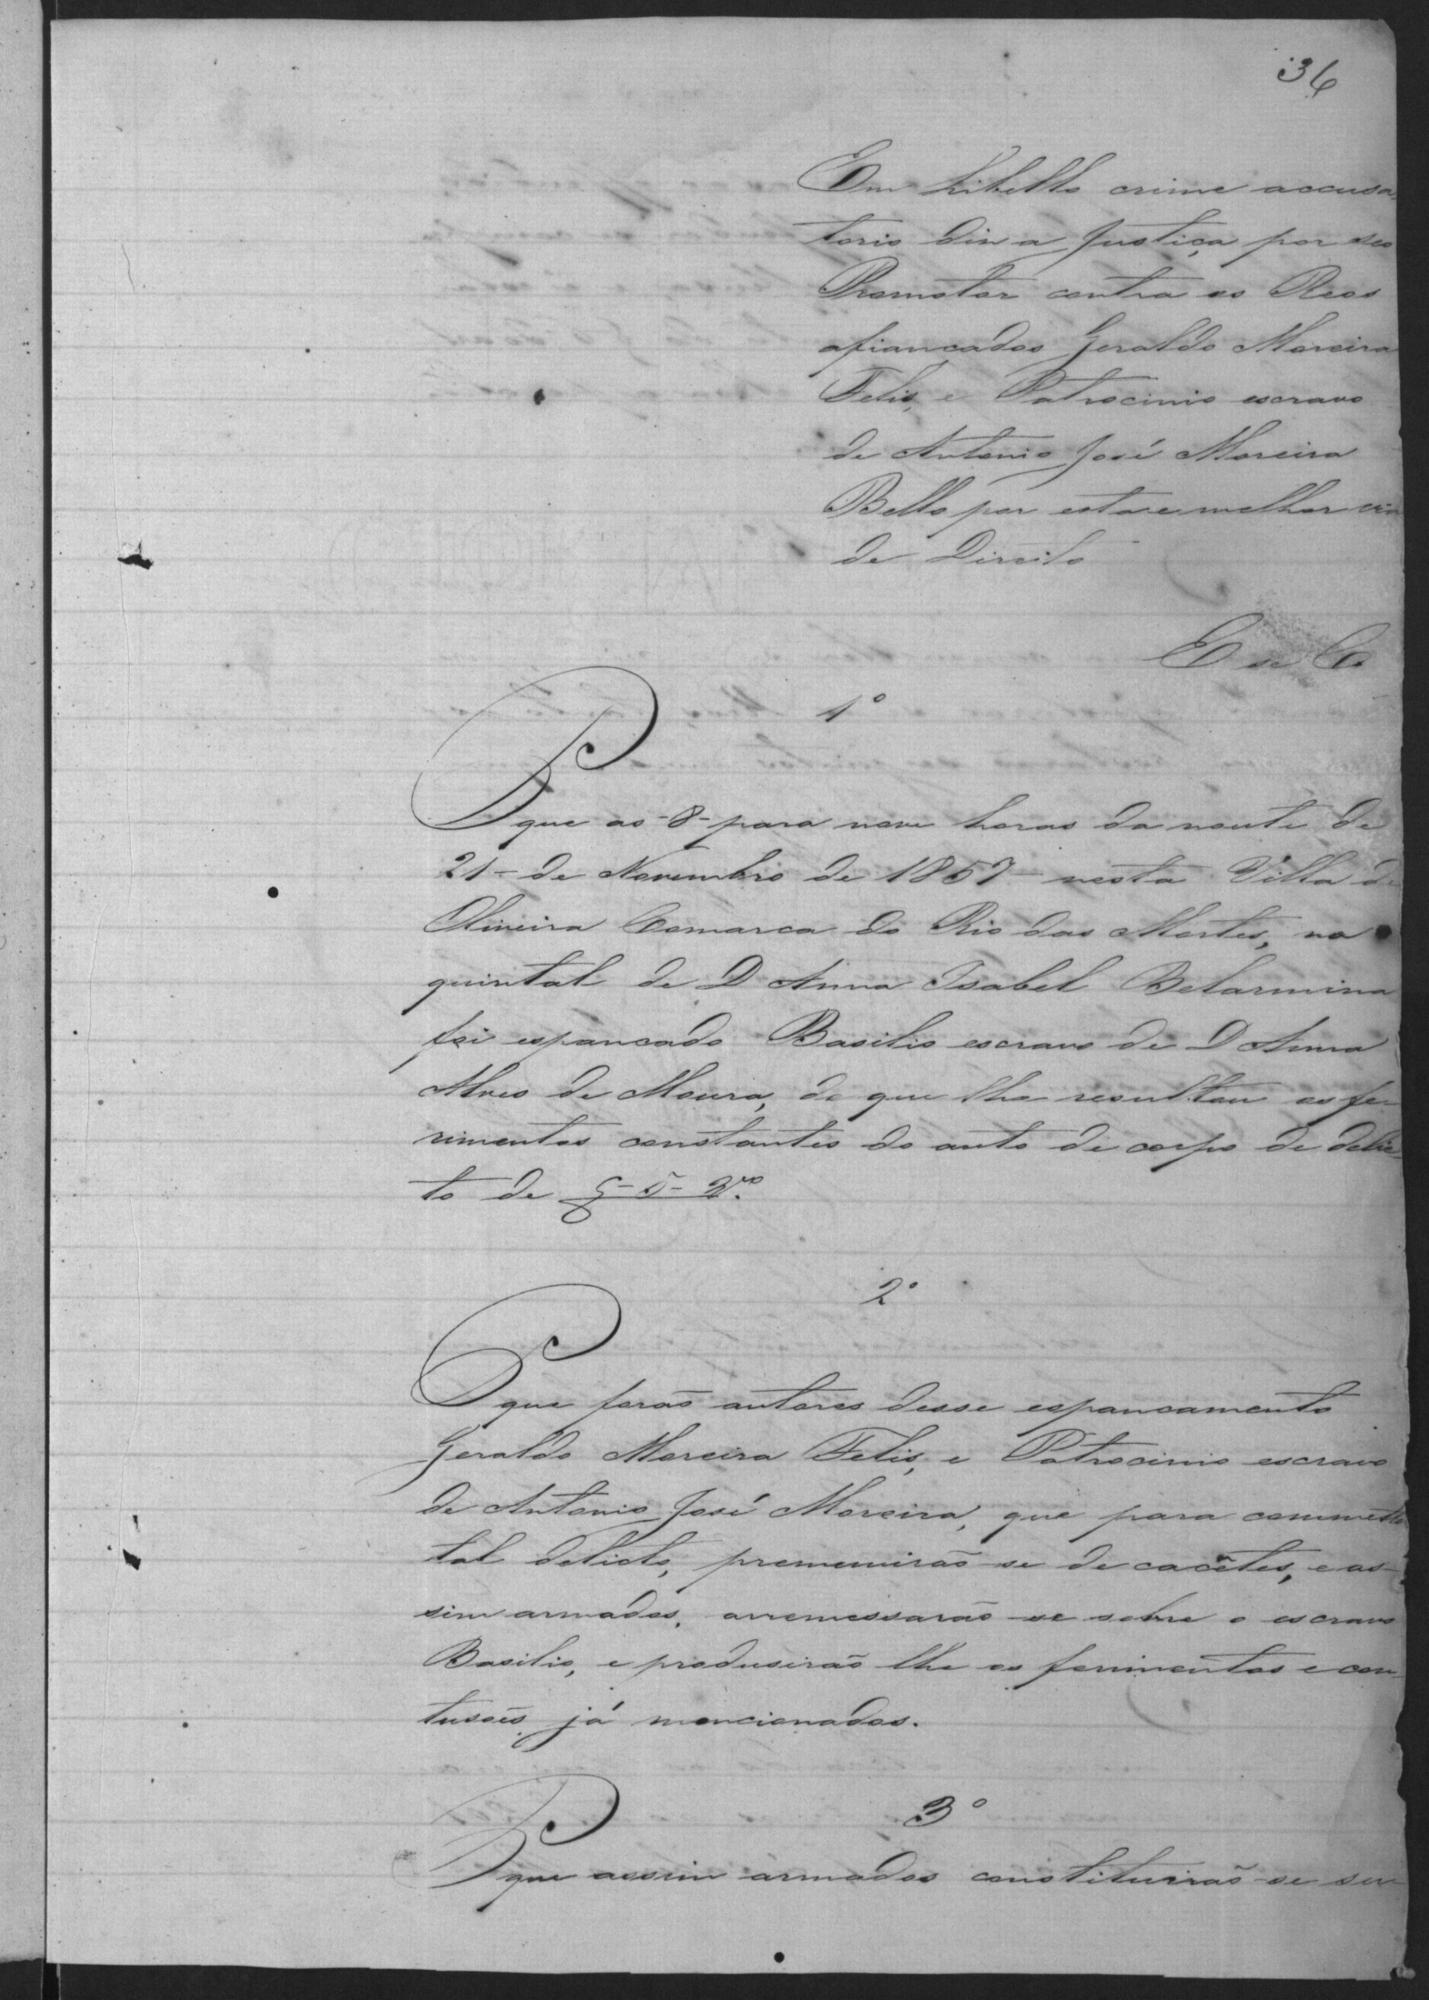 36
Em Libello crime accusa
torio diz a Justiça por seo
Promotor contra os Reos
afiançados Geraldo Moreira
Felis, e Patrocinio escravo
de Antonio José Moreira
Bello por esta e melhor via
de Direito
E se C.
1º
P que as -8- para nove horas da noute de
21- de Novembro de 1857 nesta Villa de
Oliveira Comarca do Rio das Mortes, no
quintal de D Anna Isabel Belarmina
foi espancado Basilio escravo de D Anna
Alves de Moura, do que lhe resultou os fe-
rimentos constantes do auto de corpo de delic
to de
2º
P que forão autores desse espancamento
Geraldo Moreira Felis, e Patrocinio escravo
de Antonio José Moreira, que para commetter
tal delicto, premenirão-se de cacêtes, e as-
sim armados, arremessarão-se sobre o escravo
Basilio, e produsirão lhe os ferimentos e con
tusoẽs já mencionados.
3º
P que assim armados constituirão-se